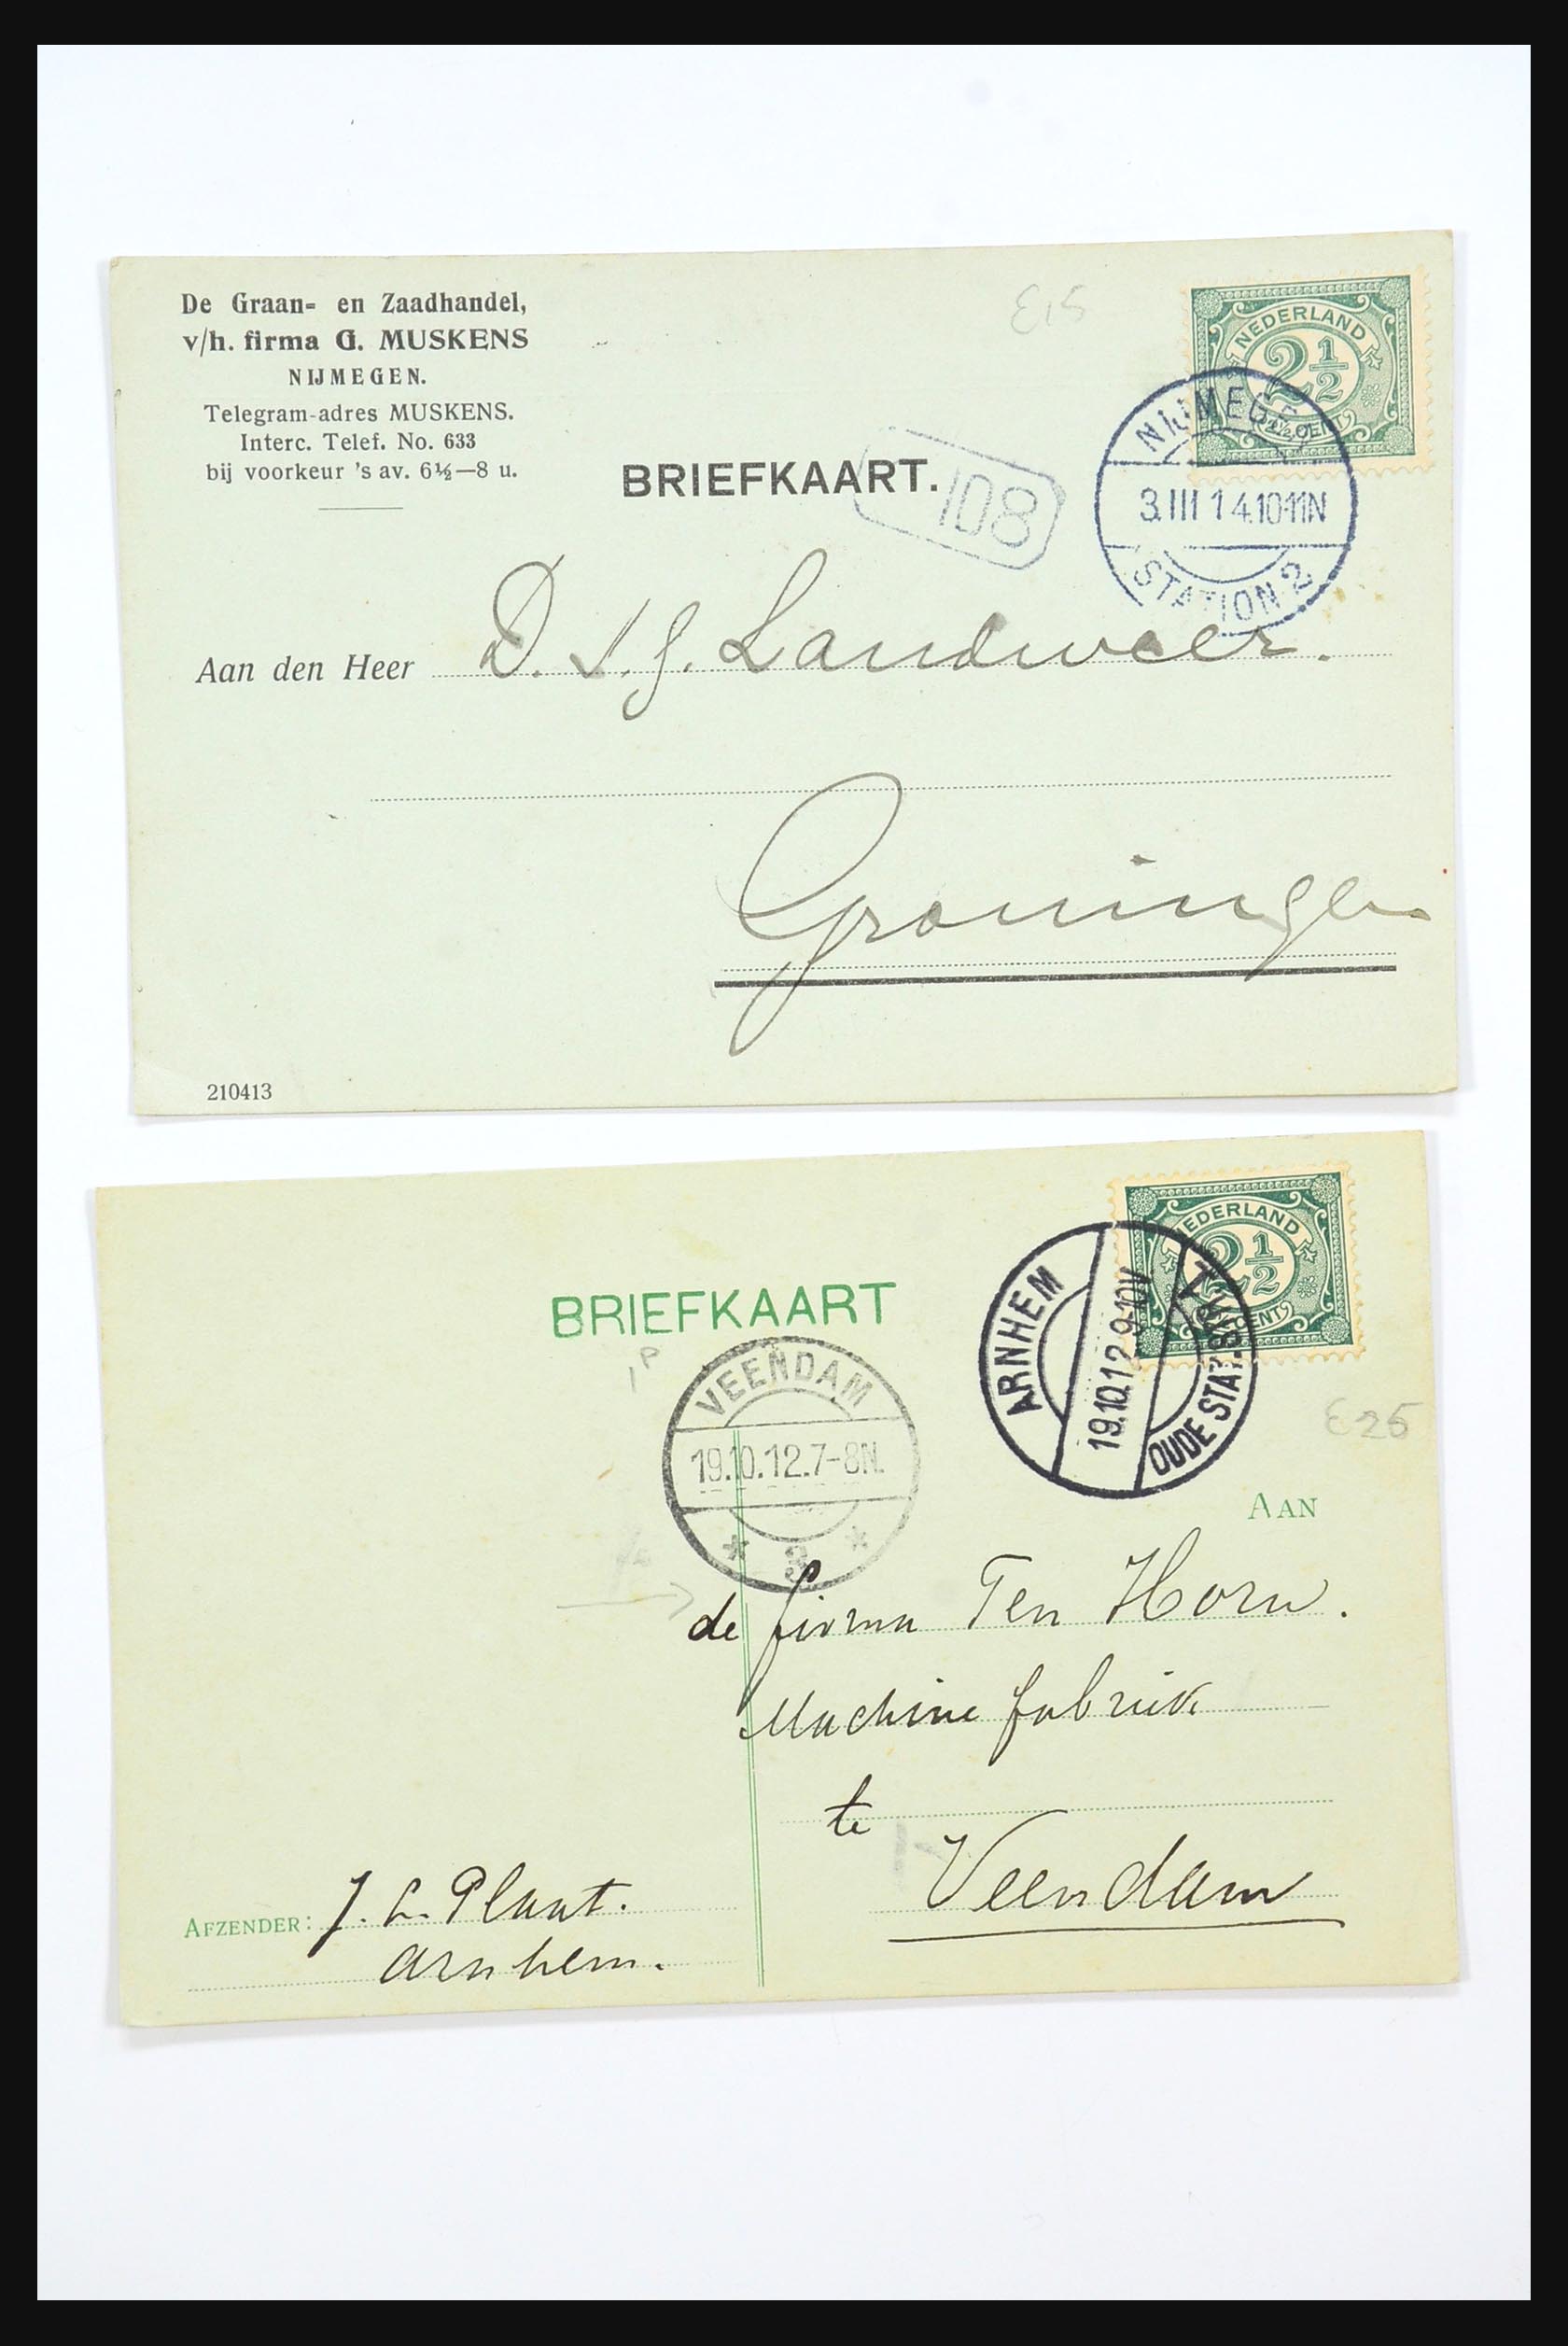 De Graan- en Zaadhandel,
v/h. firma G. MUSKENS
NIJMEGEN.
Telegram-adres MUSKENS.
Interc. Telef. No. 633
bij voorkeur 's av. 6½—8 u.
E15
NEDERLAND
2½
2½ CENT
NIJMEGEN
3.III 14.10-11N
STATION 2
BRIEFKAART.
108
Aan den Heer D. J. G. Landweer.
Groningen
210413
BRIEFKAART
NEDERLAND
2½
CENT
ARNHEM
19.10.12 9-10V
OUDE STAT.STR.
VEENDAM
19.10.12.7-8N.
* 3 *
E25
AAN
de firma Ten Horn.
Machinefabriek
te
Veendam
AFZENDER: J. L. Plaat.
Arnhem.